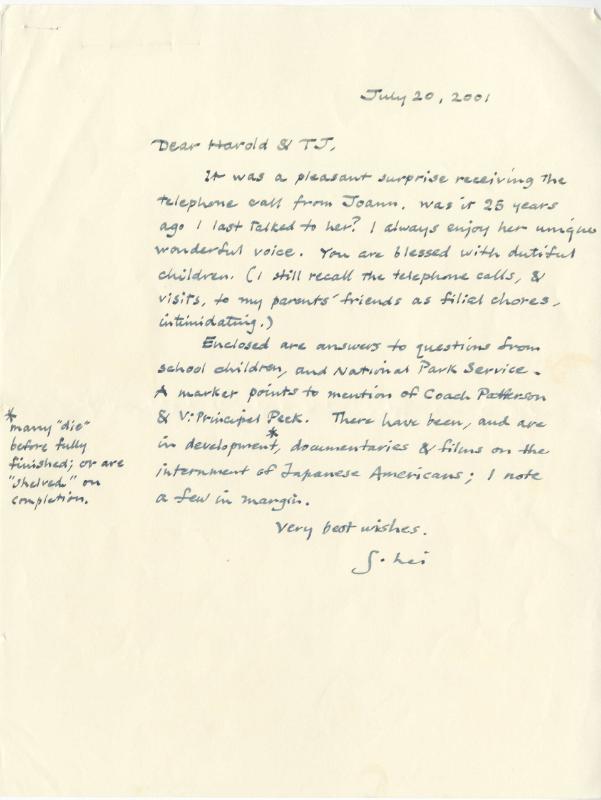 July 20, 2001
Dear Harold & TJ,
It was a pleasant surprise receiving the
telephone call from Joann. was it 25 years
ago I last talked to her? I always enjoy her unique
wonderful voice. You are blessed with dutiful
children. (I still recall the telephone calls, &
visits, to my parents' friends as filial chores,
intimidating.)
Enclosed are answers to questions from
school children, and National Park Service.
A marker points to mention of Coach Patterson
& V. Principal Peck. There have been, and are
in development,* documentaries & films on the
internment of Japanese Americans; I note
a few in margin.
Very best wishes.
*
many "die"
before fully
finished; or are
"shelved" on
completion.